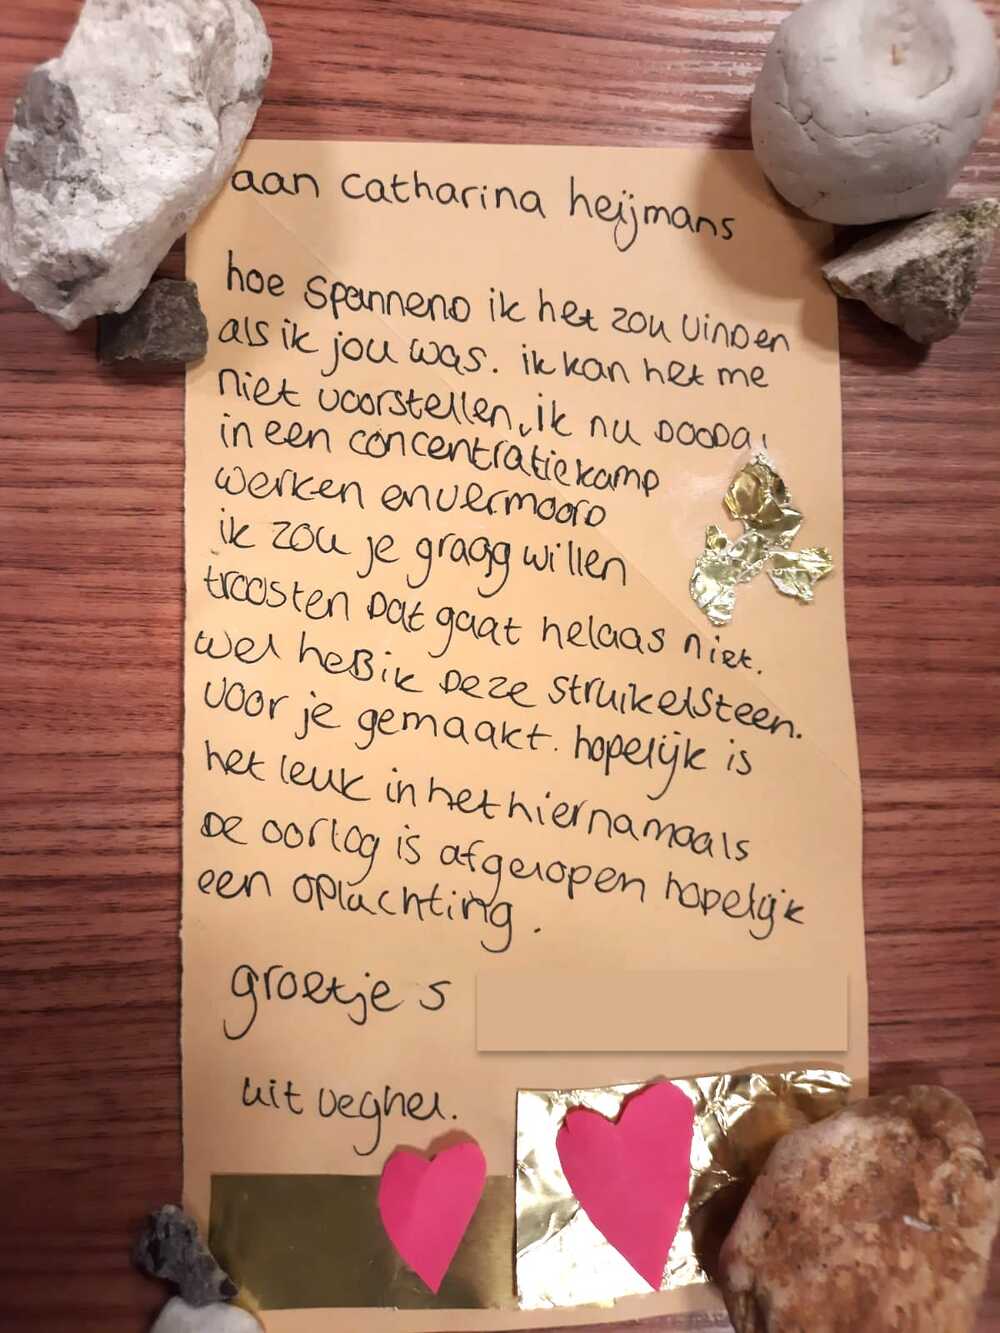 aan catharina heijmans
hoe spannend ik het zou vinden
als ik jou was. ik kan het me
niet voorstellen, ik nu dooda
in een concentratiekamp
werken en vermoord
ik zou je graag willen
troosten dat gaat helaas niet.
wel heb ik deze struikelsteen.
voor je gemaakt. hopelijk is
het leuk in het hiernamaals
de oorlog is afgelopen hopelijk
een opluchting.
groetjes
uit veghel.